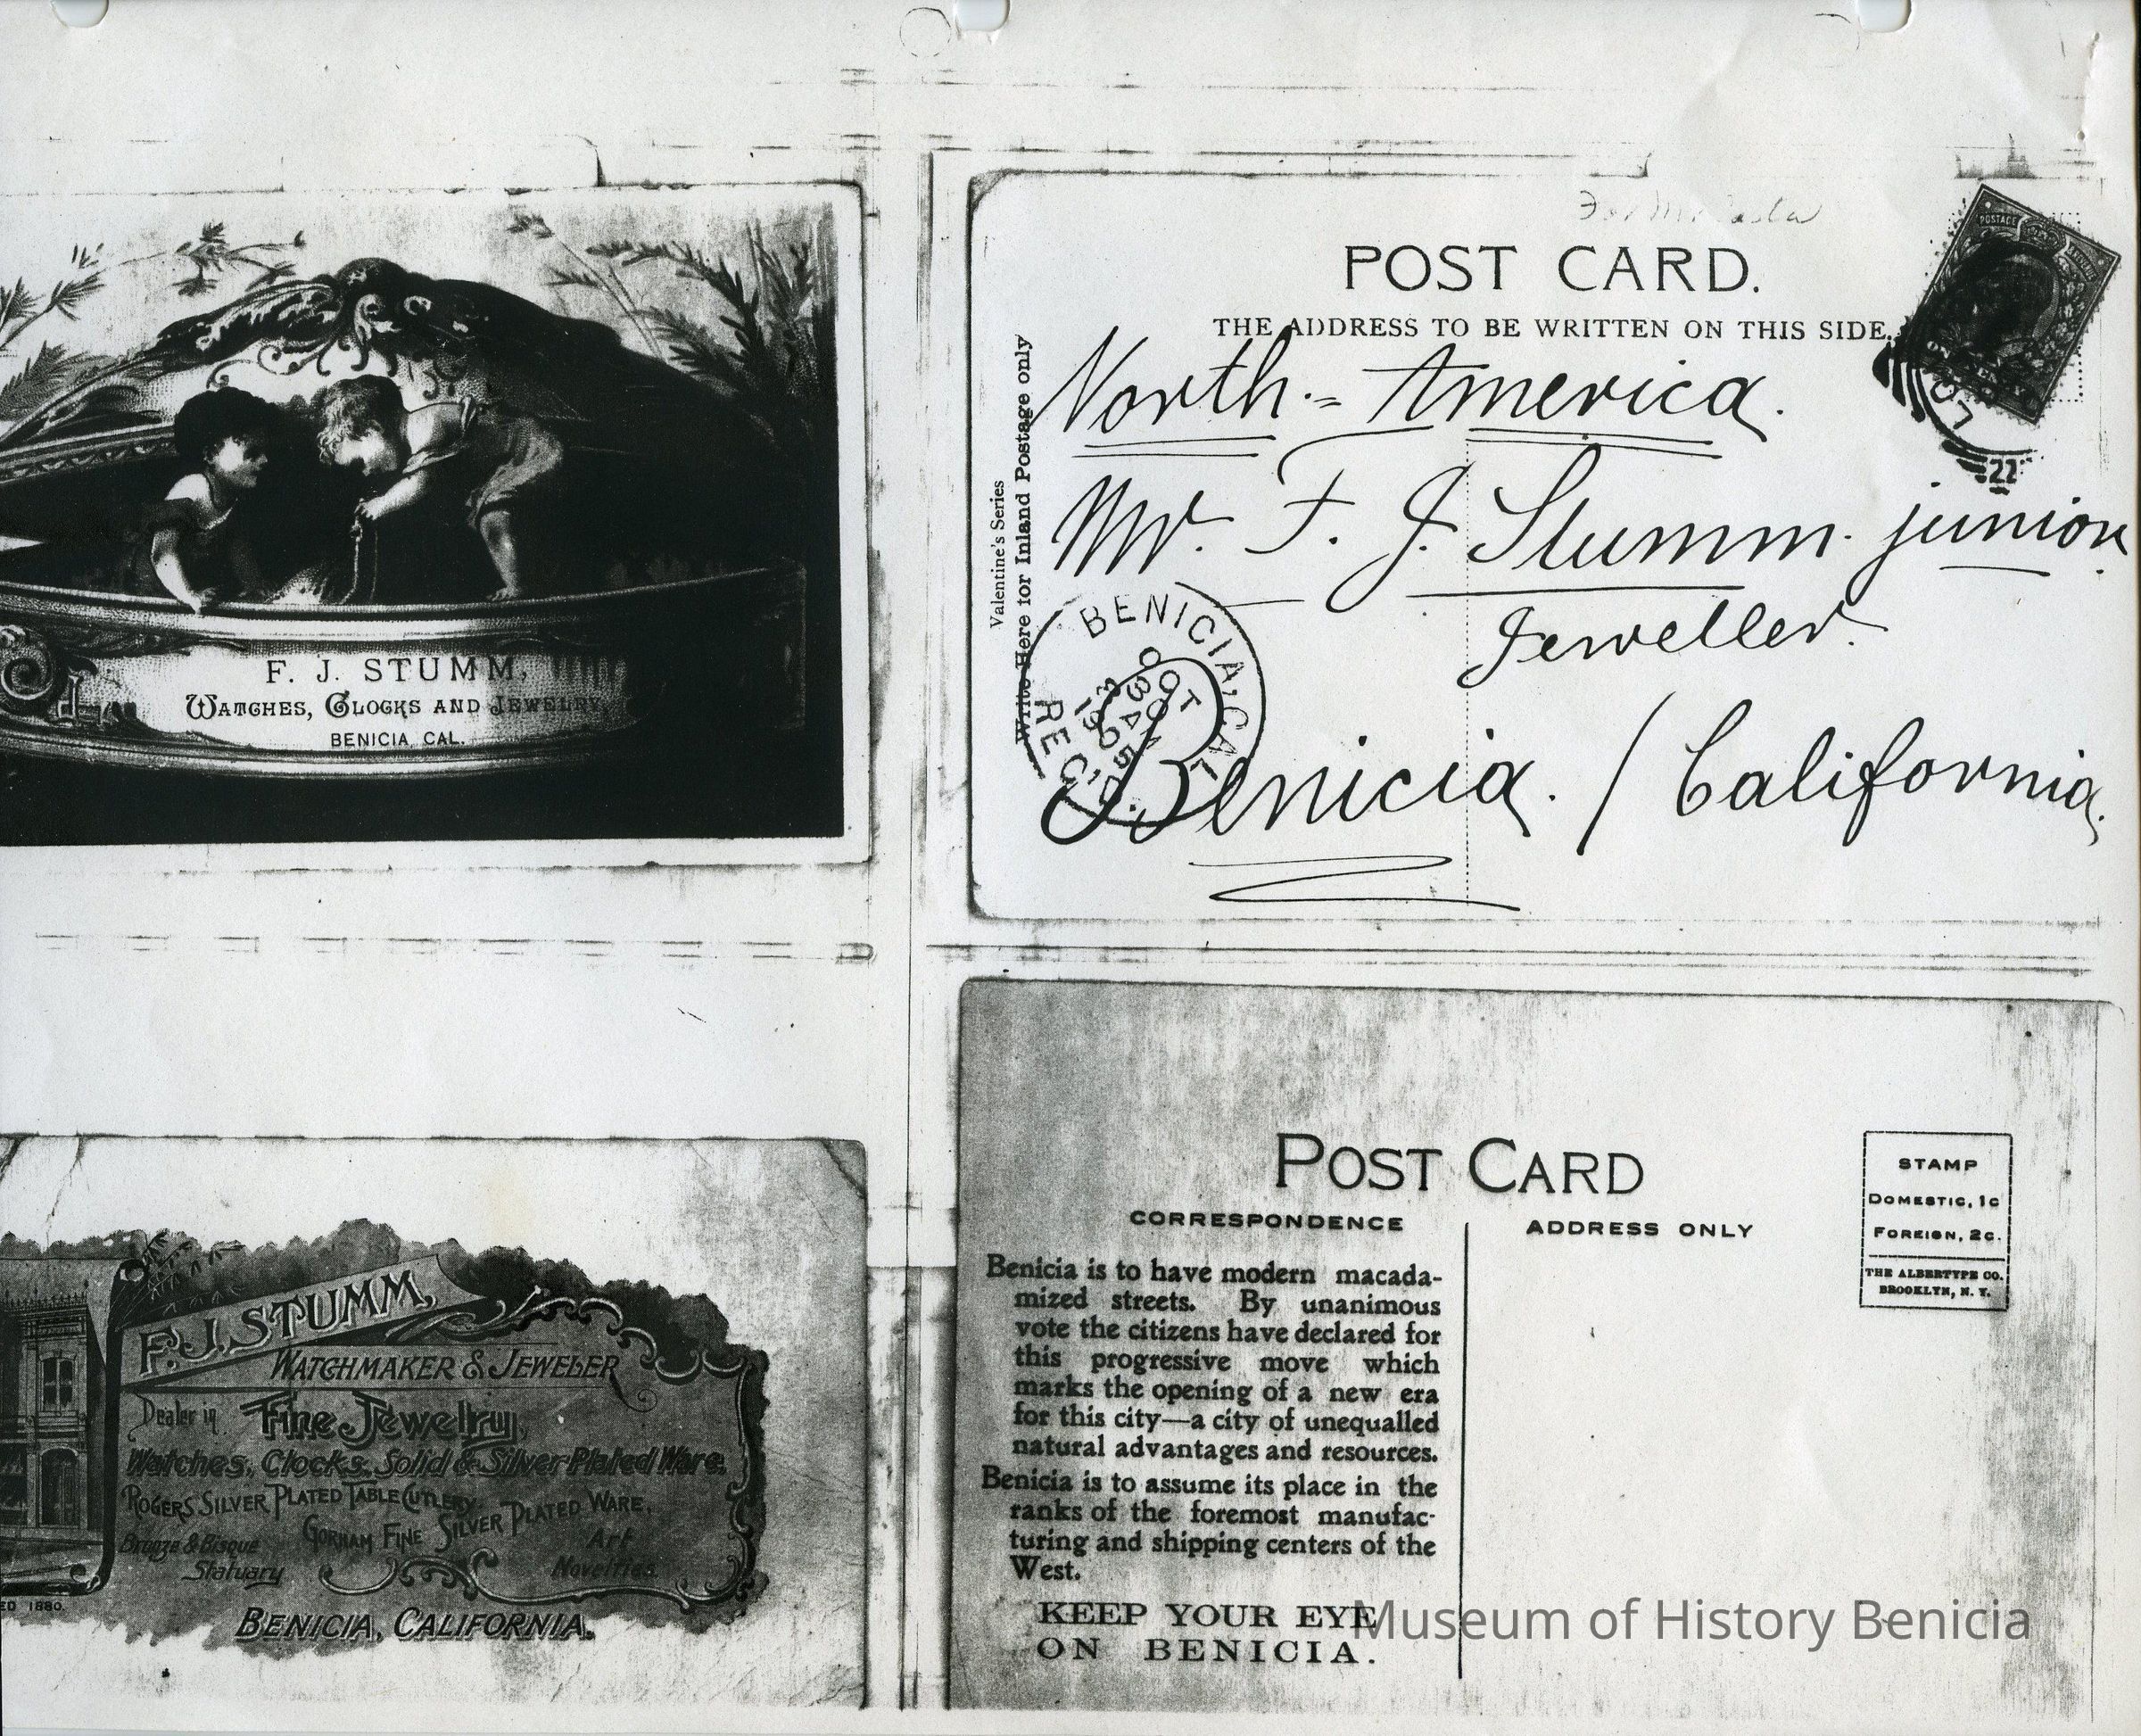 F. J. STUMM,
WATCHES, CLOCKS AND JEWELRY,
BENICIA, CAL.
POST CARD.
THE ADDRESS TO BE WRITTEN ON THIS SIDE.
Valentine's Series
Write Here for Inland Postage only
POSTAGE
22
North-America.
Mr. F. J. Stumm. junior.
Jeweller.
Benicia. / California.
BENICIA, CAL.
OCT
30
3 AM
1905
REC'D.
F.J. STUMM,
WATCHMAKER & JEWELER
Dealer in Fine Jewelry,
Watches, Clocks, Solid & Silver Plated Ware,
ROGERS SILVER PLATED TABLE CUTLERY,
GORHAM FINE SILVER PLATED WARE,
Bronze & Bisque
Statuary
Art
Novelties.
ED 1880.
BENICIA, CALIFORNIA.
POST CARD
CORRESPONDENCE
ADDRESS ONLY
STAMP
DOMESTIC, 1c
FOREIGN, 2c.
THE ALBERTYPE CO.
BROOKLYN, N. Y.
Benicia is to have modern macada-
mized streets. By unanimous
vote the citizens have declared for
this progressive move which
marks the opening of a new era
for this city—a city of unequalled
natural advantages and resources.
Benicia is to assume its place in the
ranks of the foremost manufac-
turing and shipping centers of the
West.
KEEP YOUR EYE
ON BENICIA.
Museum of History Benicia